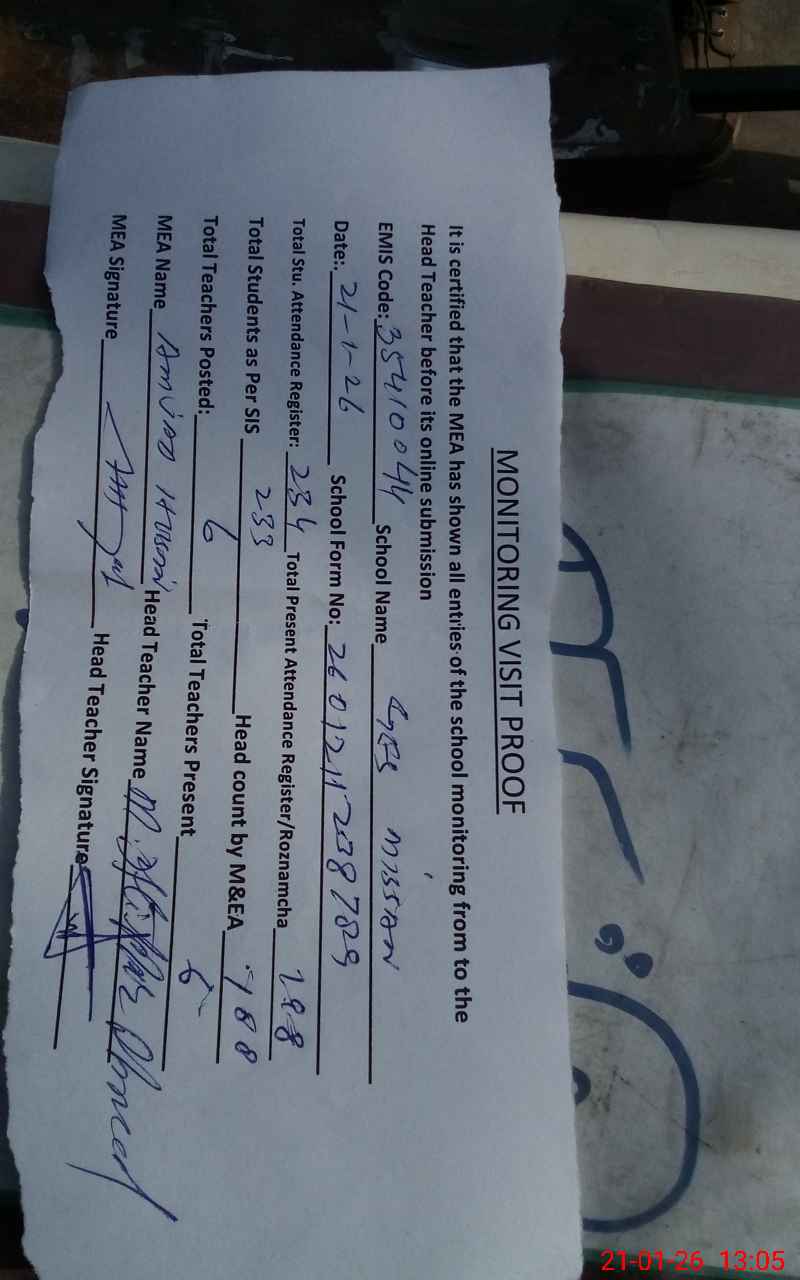 MONITORING VISIT PROOF
It is certified that the MEA has shown all entries of the school monitoring from to the
Head Teacher before its online submission
EMIS Code: 35410044 School Name mission
Date: 21-1-26 School Form No:
Total Stu. Attendance Register: 234 Total Present Attendance Register/Roznamcha 188
Total Students as Per SIS 233 Head count by M&EA 188
Total Teachers Posted: 6 Total Teachers Present 6
MEA Name Amjad Hussain Head Teacher Name Ahmed
MEA Signature Head Teacher Signature
21-01-26 13:05